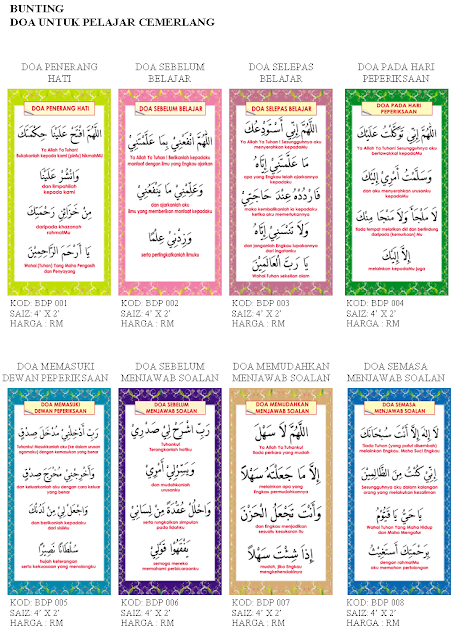 BUNTING
DOA UNTUK PELAJAR CEMERLANG
DOA PENERANG
HATI
DOA PENERANG HATI
اَللّٰهُمَّ افْتَحْ عَلَيْنَا حِكْمَتَكَ
Ya Allah Ya Tuhan!
Bukakanlah kepada kami (pintu) hikmatMu
وَانْشُرْ عَلَيْنَا
dan limpahilah
kepada kami
مِنْ خَزَائِنِ رَحْمَتِكَ
daripada khazanah
rahmatMu
يَا أَرْحَمَ الرَّاحِمِيْنَ
Wahai (Tuhan) Yang Maha Pengasih
dan Penyayang
KOD: BDP 001
SAIZ: 4' X 2'
HARGA : RM
DOA SEBELUM
BELAJAR
DOA SEBELUM BELAJAR
اَللّٰهُمَّ انْفَعْنِيْ بِمَا عَلَّمْتَنِيْ
Ya Allah Ya Tuhan! Berikanlah kepadaku
manfaat dengan ilmu yang Engkau ajarkan
وَعَلِّمْنِيْ مَا يَنْفَعُنِيْ
dan ajarkanlah aku
ilmu yang memberikan manfaat kepadaku
وَزِدْنِيْ عِلْمًا
serta pertingkatkanlah ilmuku
KOD: BDP 002
SAIZ: 4' X 2'
HARGA : RM
DOA SELEPAS
BELAJAR
DOA SELEPAS BELAJAR
اَللّٰهُمَّ إِنِّيْ أَسْتَوْدِعُكَ
Ya Allah Ya Tuhan! Sesungguhnya aku
menyerahkan kepadaMu
مَا عَلَّمْتَنِيْ إِيَّاهُ
apa yang Engkau telah ajarkan
kepadaku
فَارْدُدْهُ عِنْدَ حَاجَتِيْ
maka kembalikanlah ia kepadaku
ketika aku memerlukannya
وَلَا تَنْسَنِيْ إِيَّاهُ
dan janganlah Engkau lupakannya
dari ingatanku
يَا رَبَّ الْعَالَمِيْنَ
Wahai Tuhan sekelian alam
KOD: BDP 003
SAIZ: 4' X 2'
HARGA : RM
DOA PADA HARI
PEPERIKSAAN
DOA PADA HARI
PEPERIKSAAN
اَللّٰهُمَّ إِنِّيْ تَوَكَّلْتُ عَلَيْكَ
Ya Allah Ya Tuhan! Sesungguhnya aku
bertawakkal kepadaMu
وَسَلَّمْتُ أَمْرِيْ إِلَيْكَ
dan aku menyerahkan urusanku
kepadaMu
لَا مَلْجَأَ وَلَا مَنْجَا مِنْكَ
tiada tempat melarikan diri dan berlindung
daripada (kemurkaan) Mu
إِلَّا إِلَيْكَ
melainkan kepadaMu juga
KOD: BDP 004
SAIZ: 4' X 2'
HARGA : RM
DOA MEMASUKI
DEWAN PEPERIKSAAN
DOA MEMASUKI
DEWAN PEPERIKSAAN
رَبِّ أَدْخِلْنِيْ مُدْخَلَ صِدْقٍ
Tuhanku! Masukkanlah aku (ke dalam urusan
agamaku) dengan kemasukan yang benar
وَأَخْرِجْنِيْ مُخْرَجَ صِدْقٍ
dan keluarkanlah aku dengan cara keluar
yang benar
وَاجْعَلْ لِيْ مِنْ لَدُنْكَ
dan berikanlah kepadaku
dari sisiMu
سُلْطَانًا نَصِيْرًا
hujah keterangan
serta kekuasaan yang menolongku
KOD: BDP 005
SAIZ: 4' X 2'
HARGA : RM
DOA SEBELUM
MENJAWAB SOALAN
DOA SEBELUM
MENJAWAB SOALAN
رَبِّ اشْرَحْ لِيْ صَدْرِيْ
Tuhanku!
Terangkanlah hatiku
وَيَسِّرْ لِيْ أَمْرِيْ
dan mudahkanlah
urusanku
وَاحْلُلْ عُقْدَةً مِنْ لِسَانِيْ
serta rungkaikan simpulan
pada lidahku
يَفْقَهُوْا قَوْلِيْ
semoga mereka
memahami perbicaraanku
KOD: BDP 006
SAIZ: 4' X 2'
HARGA : RM
DOA MEMUDAHKAN
MENJAWAB SOALAN
DOA MEMUDAHKAN
MENJAWAB SOALAN
اَللّٰهُمَّ لَا سَهْلَ
Ya Allah Ya Tuhan!
Tiada perkara yang mudah
إِلَّا مَا جَعَلْتَهُ سَهْلًا
melainkan apa yang
Engkau permudahkannya
وَأَنْتَ تَجْعَلُ الْحَزْنَ
dan Engkau menjadikan
sesuatu kesukaran itu
إِذَا شِئْتَ سَهْلًا
mudah, jika Engkau
mengkehendakinya
KOD: BDP 007
SAIZ: 4' X 2'
HARGA : RM
DOA SEMASA
MENJAWAB SOALAN
DOA SEMASA
MENJAWAB SOALAN
لَا إِلٰهَ إِلَّا أَنْتَ سُبْحَانَكَ
Tiada Tuhan (yang patut disembah)
melainkan Engkau, Maha Suci Engkau
إِنِّيْ كُنْتُ مِنَ الظَّالِمِيْنَ
Sesungguhnya aku dalam kalangan
orang yang melakukan kezaliman
يَا حَيُّ يَا قَيُّوْمُ
Wahai Tuhan Yang Maha Hidup
dan Maha Mengatur
بِرَحْمَتِكَ أَسْتَغِيْثُ
dengan rahmatMu
aku memohon pertolongan
KOD: BDP 008
SAIZ: 4' X 2'
HARGA : RM